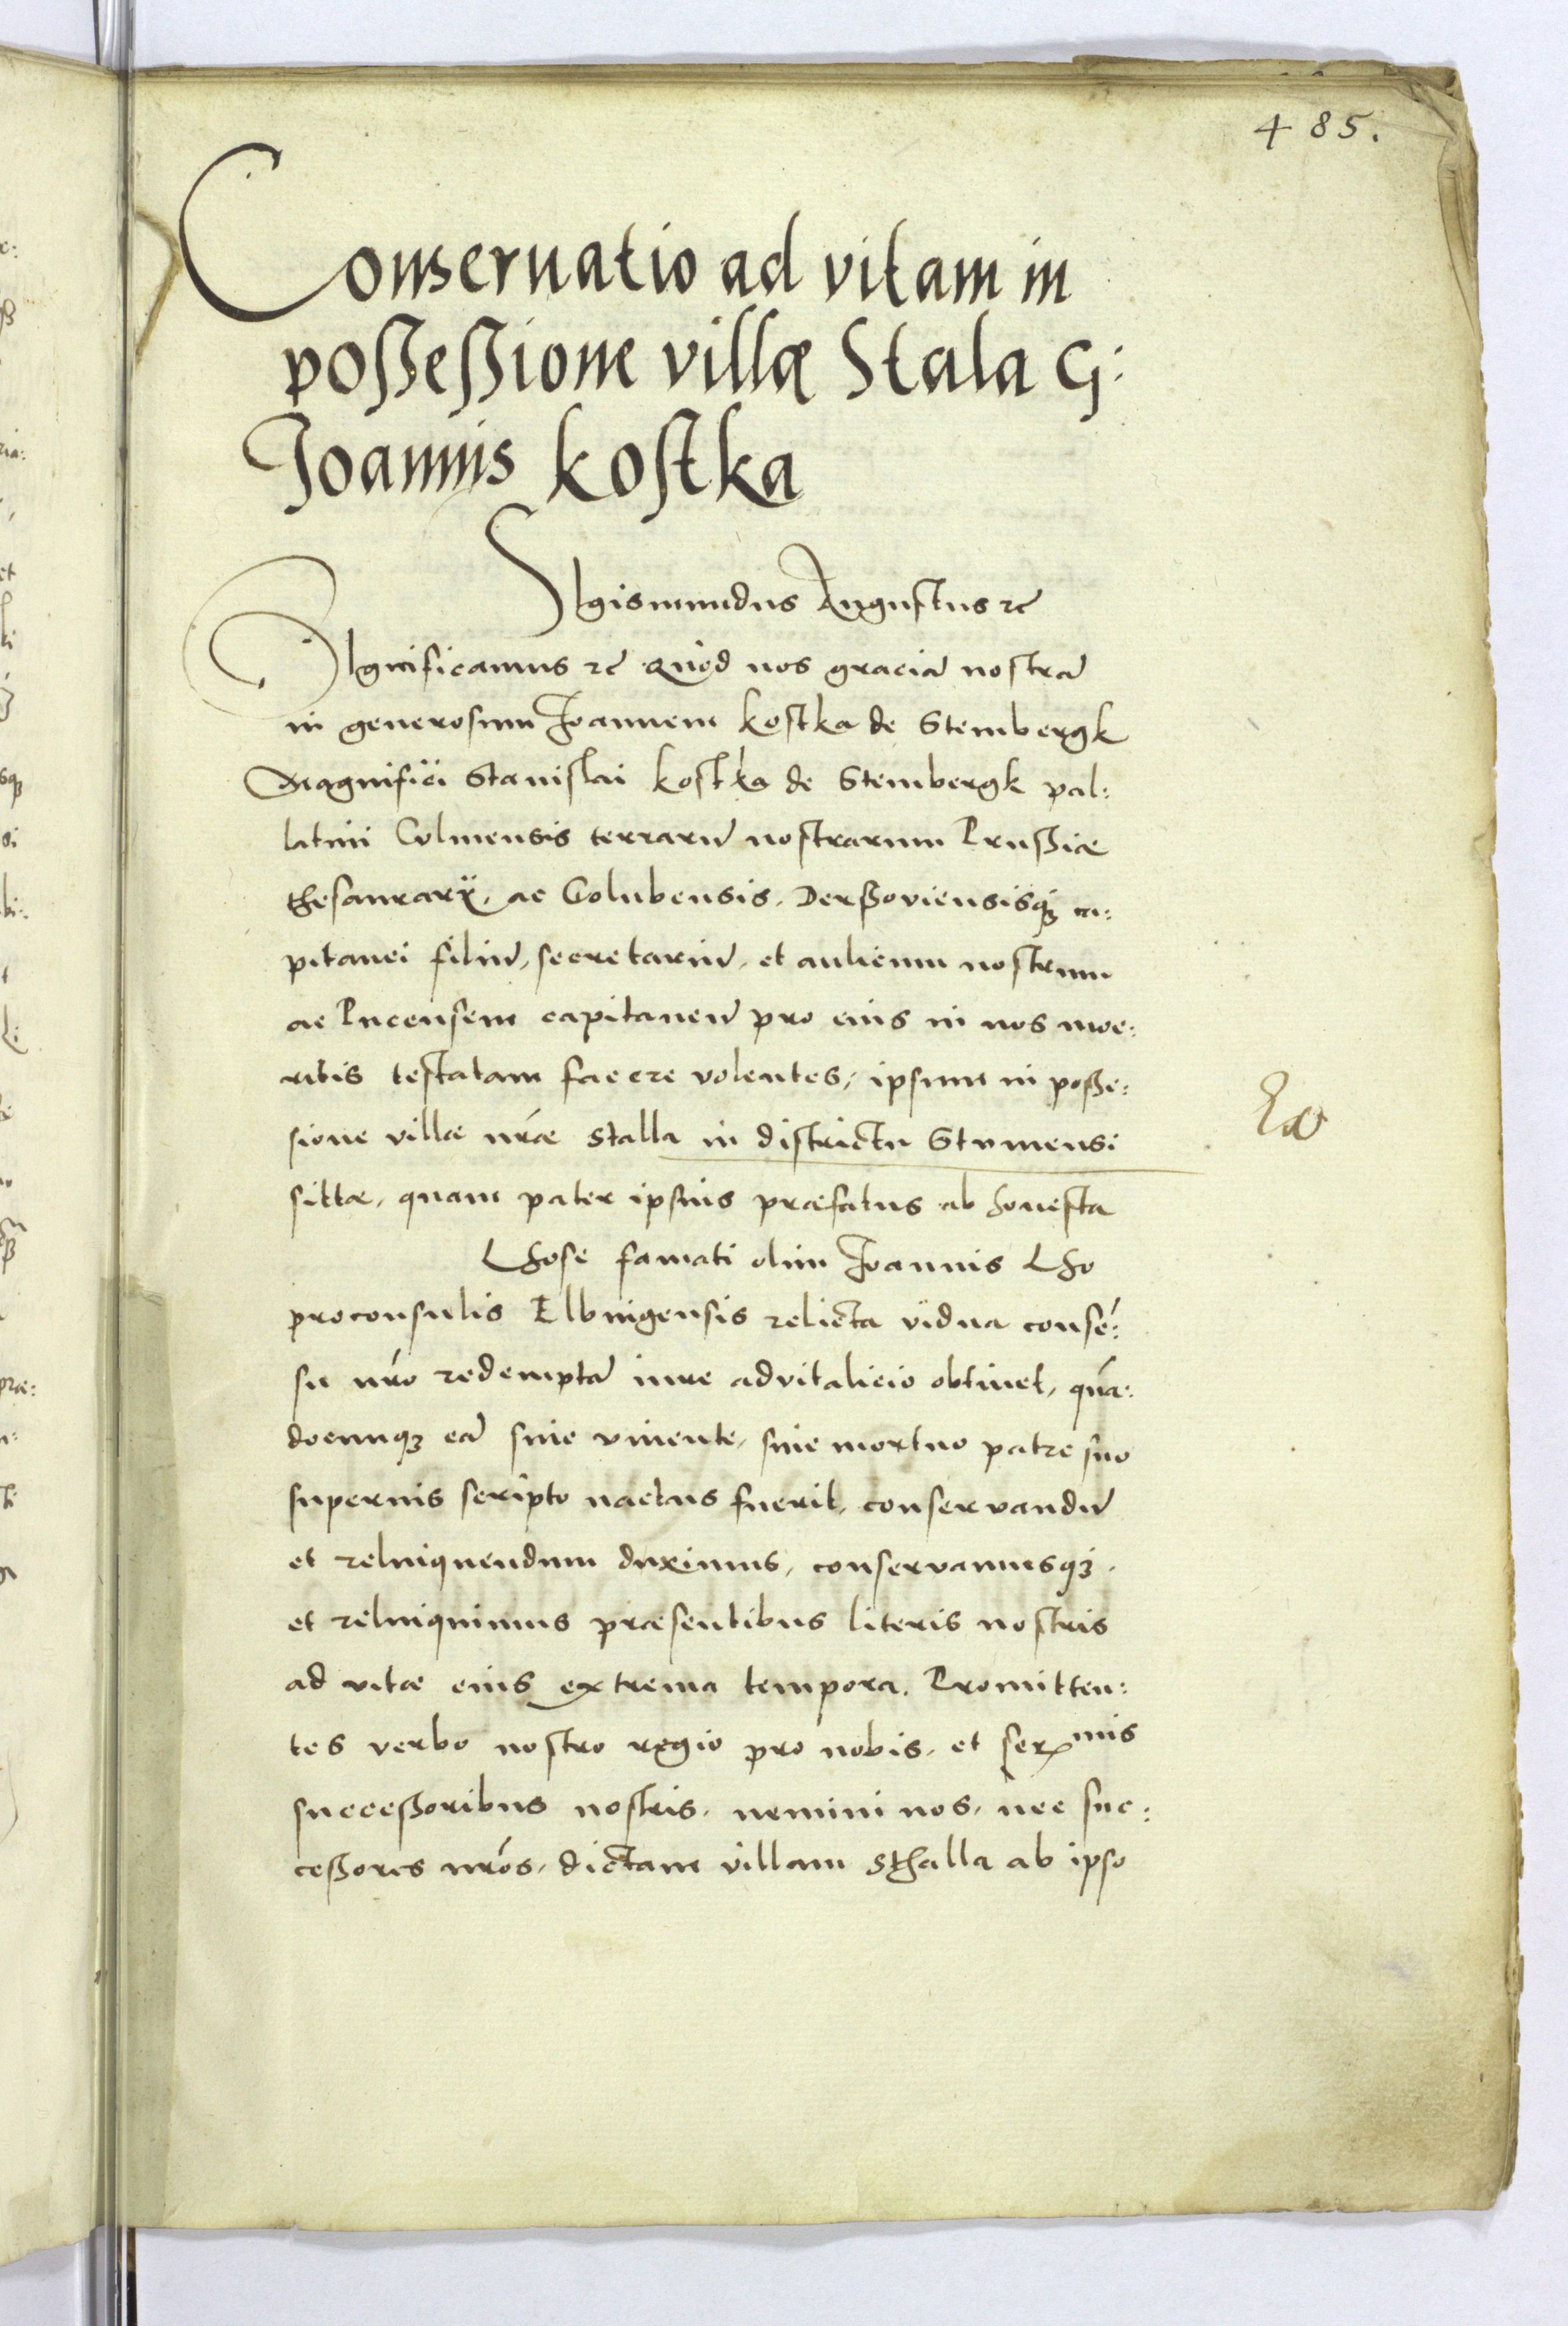 485.
Conseruatio ad vitam in
poßeßione villæ Stala G:
Joannis Kostka
SIgismundus Augustus ꝛc̃
SIgnificamus ꝛc̃ Quod nos graciã nostrã
in generosum Joannem Kostka de Stembergk
Magnifici Stanislai Kostka de Stembergk pal:
latini Culmensis terrarũ nostrarum Prußiæ
thesaurarÿ, ac Golubensis, Derßoviensisqꝫ ca:
pitanei filiũ, secretariũ, et aulicum nostrum
ac Pucensem capitaneũ pro eius in nos mæ:
ritis testatam facere volentes, ipsum in poße:
sione villæ nr̃æ Stalla in districtu Stumensi
sittæ, quam pater ipsius præfatus ab honesta
Lhose famati olim Joannis Lho
proconsulis Elbingensis relicta vidua consẽ:
su nr̃o redemptã iure advitalicio obtinet, quã:
docunqꝫ eã siue viuente, siue mortuo patre suo
superius scripto nactus fuerit, conservandũ
et relinquendum duximus, conservamusqꝫ
et relinquimus præsentibus literis nostris
ad vitæ eius extrema tempora. Promitten:
tes verbo nostro regio pro nobis, et ser^mis
succeßoribus nostris, nemini nos, nec suc:
ceßores nr̃os, dictam villam Sthalla ab ipso